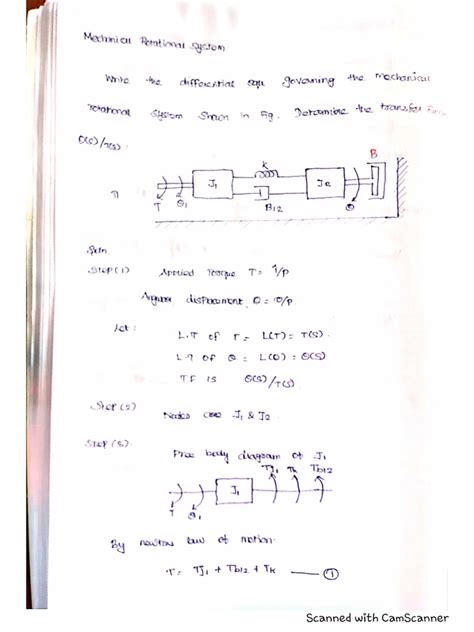 Mechanical Rotational System
Write the differential equ governing the mechanical
rotational System Shown in Fig. Determine the transfer
θ(S)/T(S).
K
B
J1
J2
T θ1
B12
θ
Soln
Step (1) Applied Torque T = I/P
Angular displacement θ = O/P.
Let:
L.T of T = L(T) = T(S).
L.T of θ = L(θ) = θ(S)
TF is θ(S)/T(S)
Step (2) Nodes are J1 & J2
Step (3).
Free body diagram of J1
TJ1 Tk Tb12
J1
T θ1
By newtons law of motion.
T = TJ1 + Tb12 + TK — ①
Scanned with CamScanner